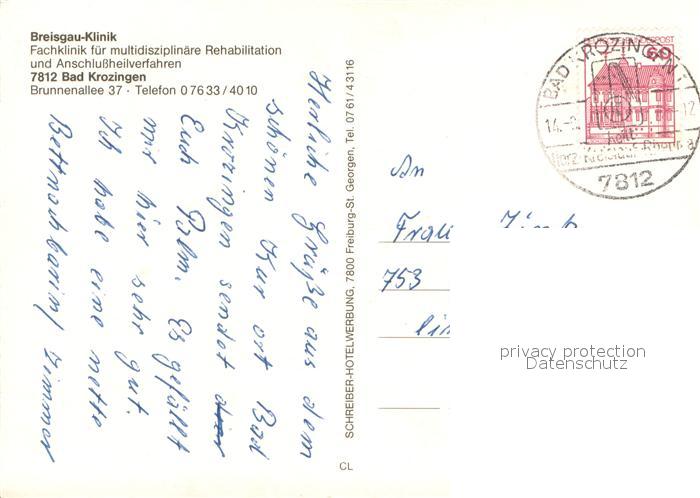 Breisgau-Klinik
Fachklinik für multidisziplinäre Rehabilitation
und Anschlußheilverfahren
7812 Bad Krozingen
Brunnenallee 37 · Telefon 0 76 33 / 40 10
Herliche Grüße aus dem
schönen Kur ort Bad
Krozingen sendet
Euch Palm. Es gefällt
mir hier sehr gut.
Ich habe eine nette
Bettnachbarin / Zimmer
SCHREIBER-HOTELWERBUNG, 7800 Freiburg-St. Georgen, Tel. 07 61 / 4 31 16
CL
BUNDESPOST
60
BAD KROZINGEN 1
14.
12
heilt
Herz
Rheuma
7812
An
Frau
753
privacy protection
Datenschutz